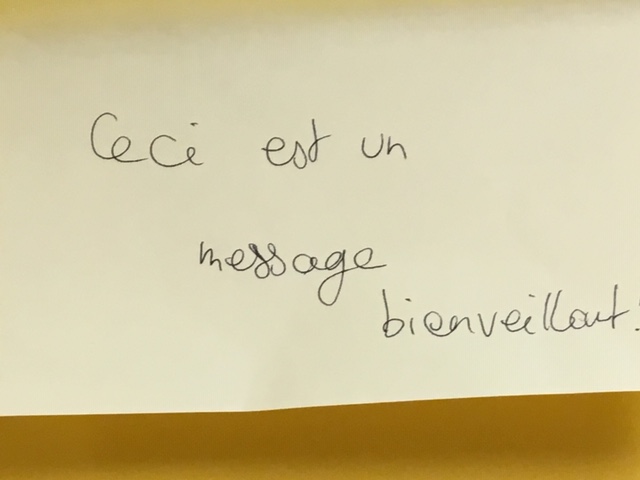 Ceci est un
message
bienveillant!